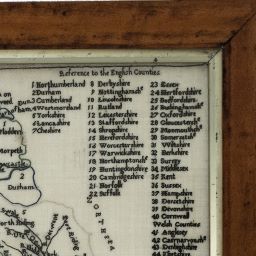 Reference to the English Counties
1 Northumberland
2 Durham
3 Cumberland
4 Westmoreland
5 Yorkshire
6 Lancashire
7 Cheshire
8 Derbyshire
9 Nottinghamsh
10 Lincolnshire
11 Rutland
12 Leicestershire
13 Staffordshire
14 Shropshire
15 Herefordshire
16 Worcestershire
17 Warwickshire
18 Northamptonsh
19 Huntingdonshire
20 Cambridgeshire
21 Norfolk
22 Suffolk
23 Essex
24 Hertfordshire
25 Bedfordshire
26 Buckinghamsh
27 Oxfordshire
28 Gloucestersh
29 Monmouthsh
30 Somersetsh
31 Wiltshire
32 Berkshire
33 Surrey
34 Middlesex
35 Kent
36 Sussex
37 Hampshire
38 Dorsetshire
39 Devonshire
40 Cornwall
Welsh Counties
41 Anglesey
42 Caernarvonsh
43 Denbighshire
44 Flintshire
Morpeth
Newcastle
2
Durham
North Riding
NORTH SEA